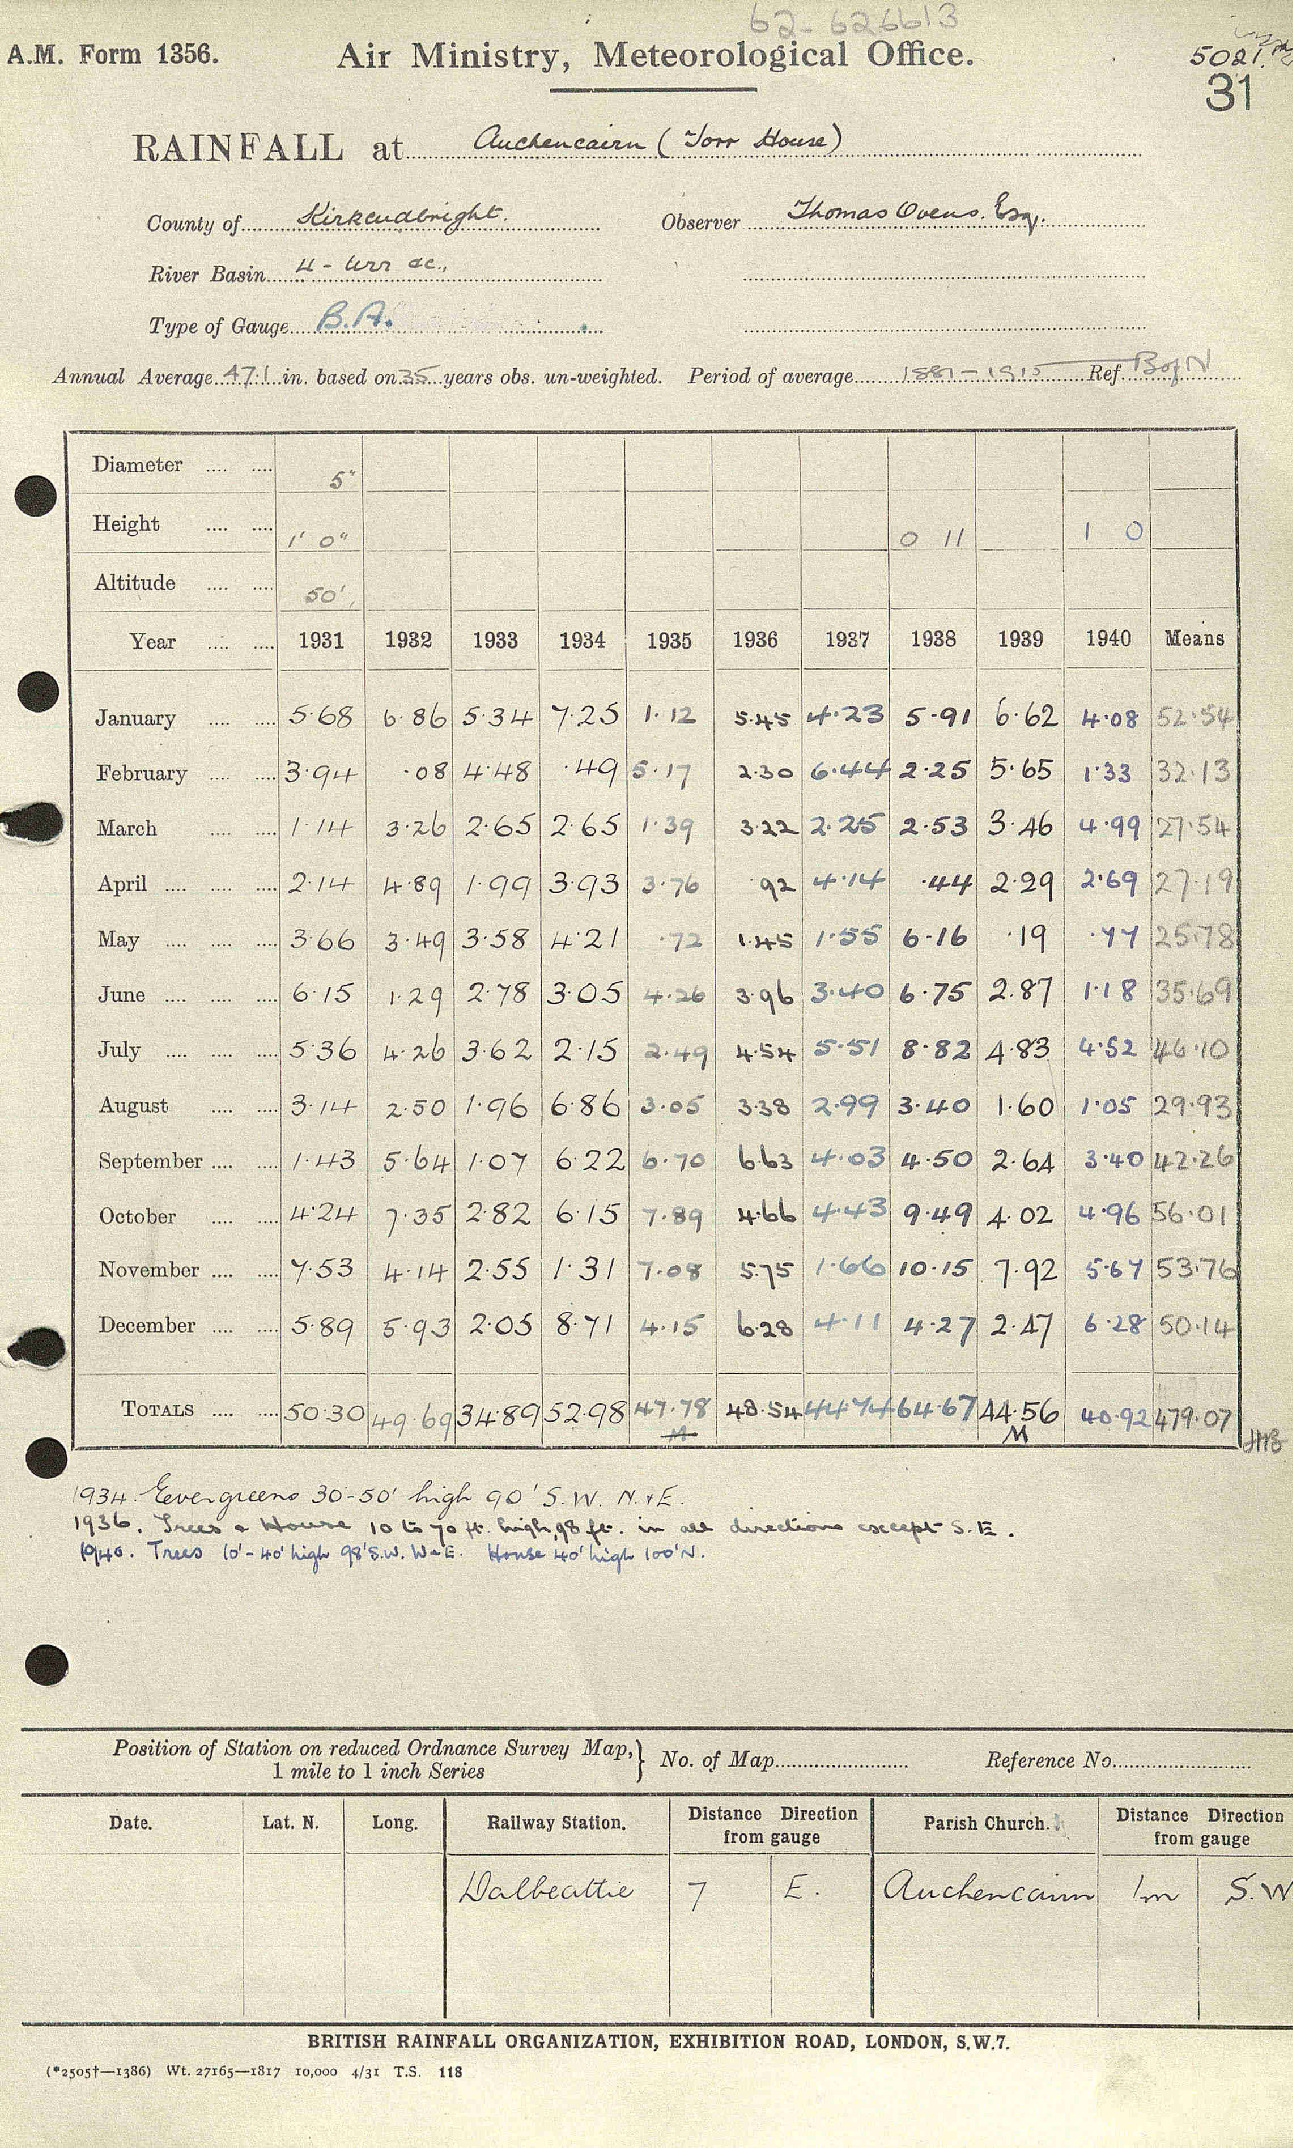 62-626613
A.M. Form 1356. Air Ministry, Meteorological Office. 5021
31
RAINFALL at Auchencairn (Torr House)
County of Kirkcudbright. Observer Thomas Ovens. Esq.
River Basin 4 - Urr &c.,
Type of Gauge B.A.
Annual Average 47.1 in. based on 35 years obs. un-weighted. Period of average 1881-1915 Ref. B of N
Diameter 5"
Height 1' 0" 0 11 1 0
Altitude 50'
Year 1931 1932 1933 1934 1935 1936 1937 1938 1939 1940 Means
January 5.68 6.86 5.34 7.25 1.12 5.45 4.23 5.91 6.62 4.08 52.54
February 3.94 .08 4.48 .49 5.17 2.30 6.44 2.25 5.65 1.33 32.13
March 1.14 3.26 2.65 2.65 1.39 3.22 2.25 2.53 3.46 4.99 27.54
April 2.14 4.89 1.99 3.93 3.76 .92 4.14 .44 2.29 2.69 27.19
May 3.66 3.49 3.58 4.21 .72 1.45 1.55 6.16 .19 .77 25.78
June 6.15 1.29 2.78 3.05 4.26 3.96 3.40 6.75 2.87 1.18 35.69
July 5.36 4.26 3.62 2.15 2.49 4.54 5.51 8.82 4.83 4.52 46.10
August 3.14 2.50 1.96 6.86 3.05 3.38 2.99 3.40 1.60 1.05 29.93
September 1.43 5.64 1.07 6.22 6.70 6.63 4.03 4.50 2.64 3.40 42.26
October 4.24 7.35 2.82 6.15 7.89 4.66 4.43 9.49 4.02 4.96 56.01
November 7.53 4.14 2.55 1.31 7.08 5.75 1.66 10.15 7.92 5.67 53.76
December 5.89 5.93 2.05 8.71 4.15 6.28 4.11 4.27 2.47 6.28 50.14
TOTALS 50.30 49.69 34.89 52.98 47.78 48.54 44.74 64.67 44.56 40.92 479.07
M M
1934. Evergreens 30-50' high 90' S.W. N. & E.
1936. Trees & House 10 to 70 ft. high, 98 ft. in all directions except S.E.
1940. Trees 10'-40' high 98' S.W. W & E. House 40' high 100' N.
Position of Station on reduced Ordnance Survey Map, 1 mile to 1 inch Series } No. of Map Reference No.
Date. Lat. N. Long. Railway Station. Distance Direction from gauge Parish Church. Distance Direction from gauge
Dalbeattie 7 E. Auchencairn 1m S.W
BRITISH RAINFALL ORGANIZATION, EXHIBITION ROAD, LONDON, S.W.7.
(*2505†—1386) Wt. 27165—1817 10,000 4/31 T.S. 118